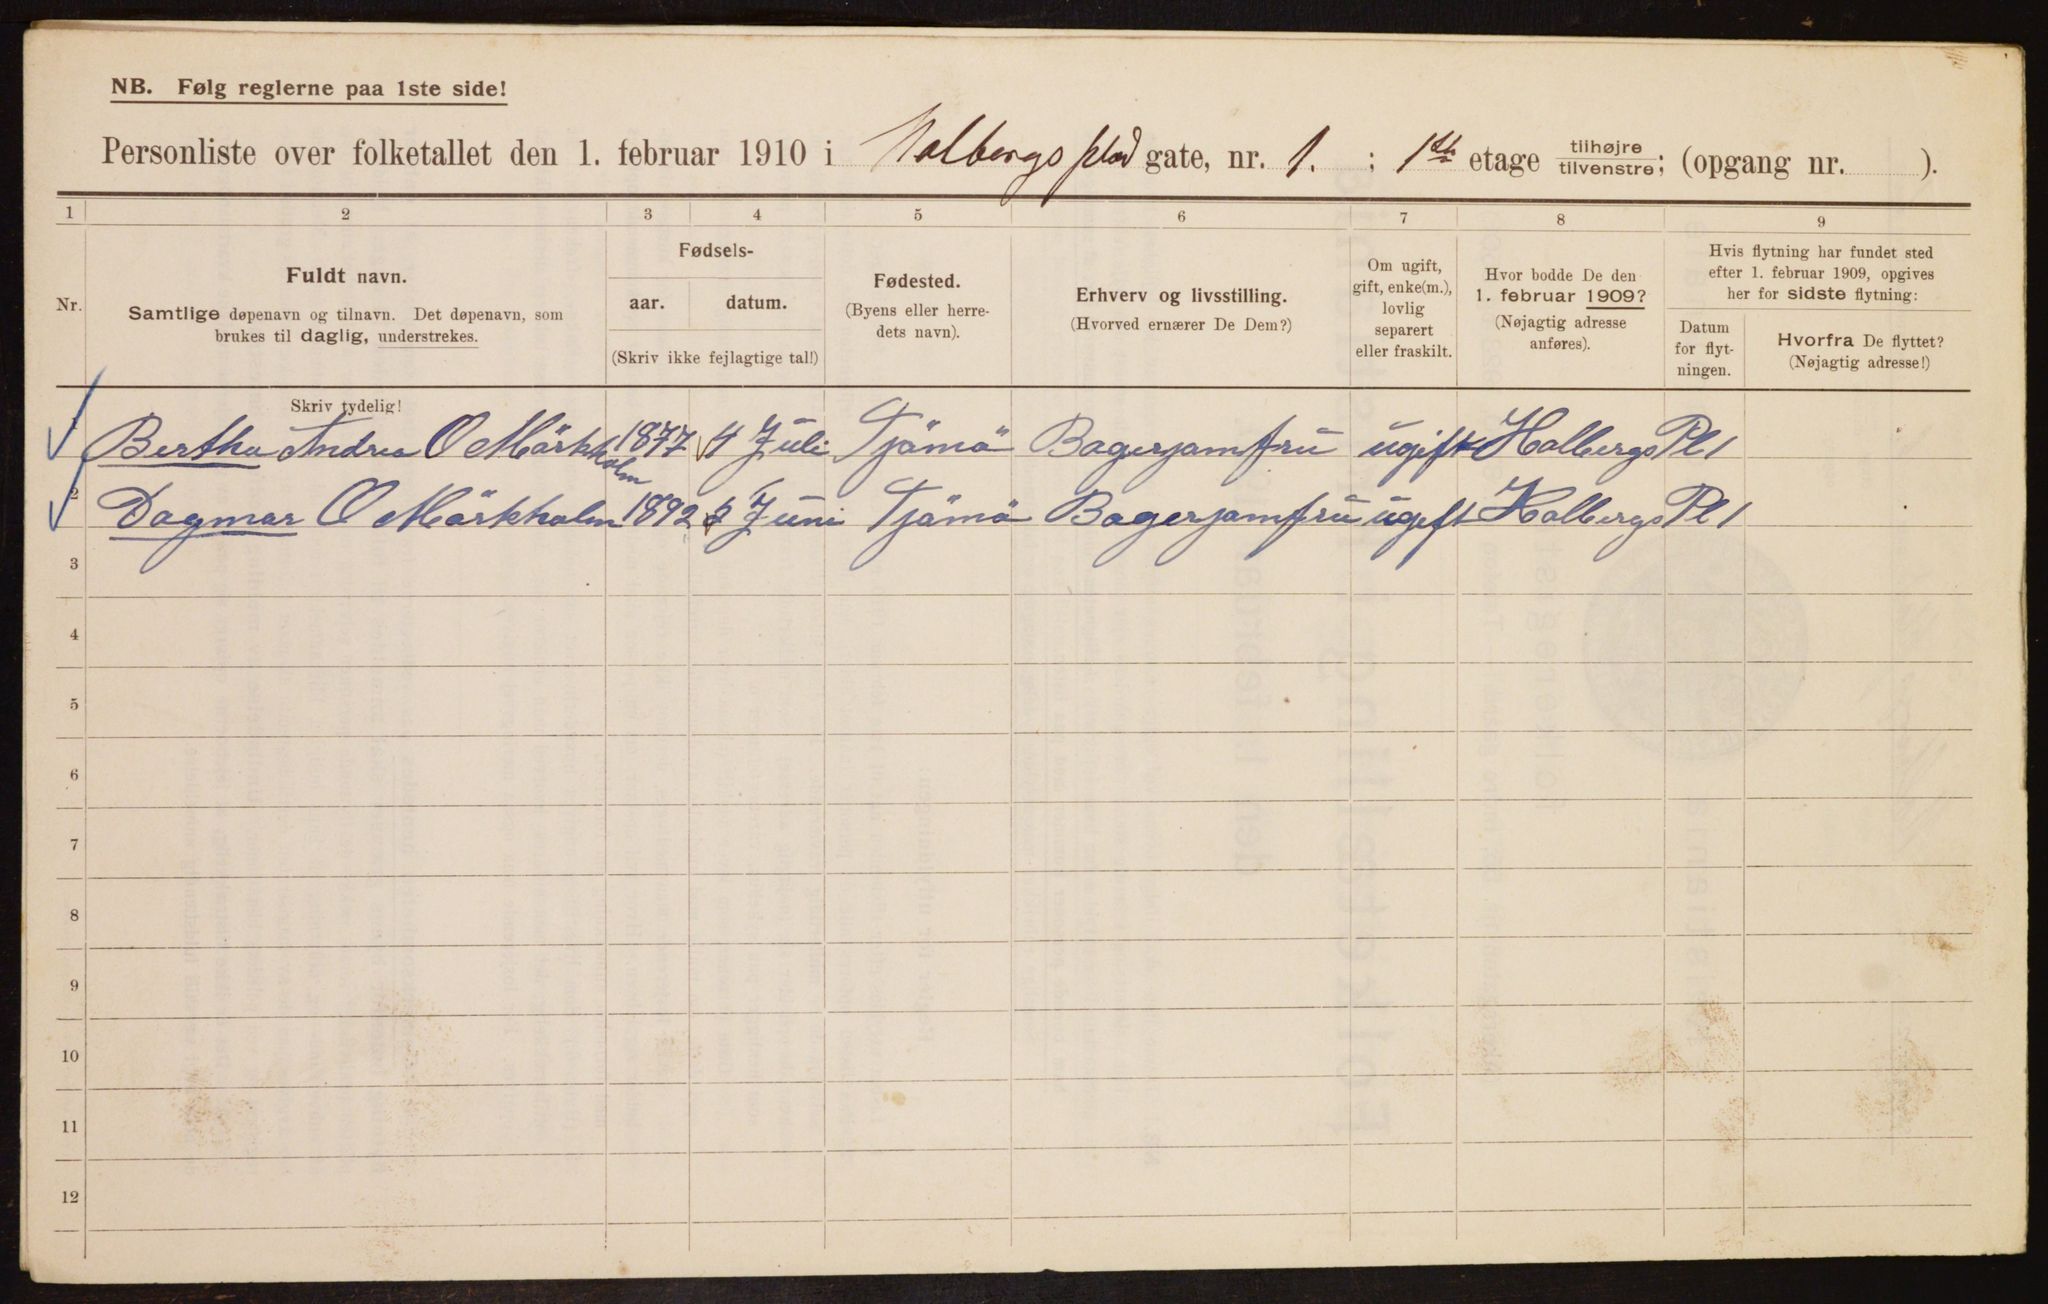 NB. Følg reglerne paa 1ste side!
Personliste over folketallet den 1. februar 1910 i Holbergs plads gate, nr. 1. ; 1ste etage tilhøjre tilvenstre; (opgang nr. ).
1 2 3 4 5 6 7 8 9
Nr.
Fuldt navn.
Samtlige døpenavn og tilnavn. Det døpenavn, som
brukes til daglig, understrekes.
Fødsels-
aar. datum.
(Skriv ikke fejlagtige tal!)
Fødested.
(Byens eller herre-
dets navn).
Erhverv og livsstilling.
(Hvorved ernærer De Dem?)
Om ugift,
gift, enke(m.),
lovlig
separert
eller fraskilt.
Hvor bodde De den
1. februar 1909?
(Nøjagtig adresse
anføres).
Hvis flytning har fundet sted
efter 1. februar 1909, opgives
her for sidste flytning:
Datum
for flyt-
ningen.
Hvorfra De flyttet?
(Nøjagtig adresse!)
Skriv tydelig!
1 Bertha Andrea O Mörkholm 1877 4 Juli Tjömö Bagerjomfru ugift Holbergs Pl 1
2 Dagmar O Mörkholm 1892 Juni Tjömö Bagerjomfru ugift Holbergs Pl 1
3
4
5
6
7
8
9
10
11
12